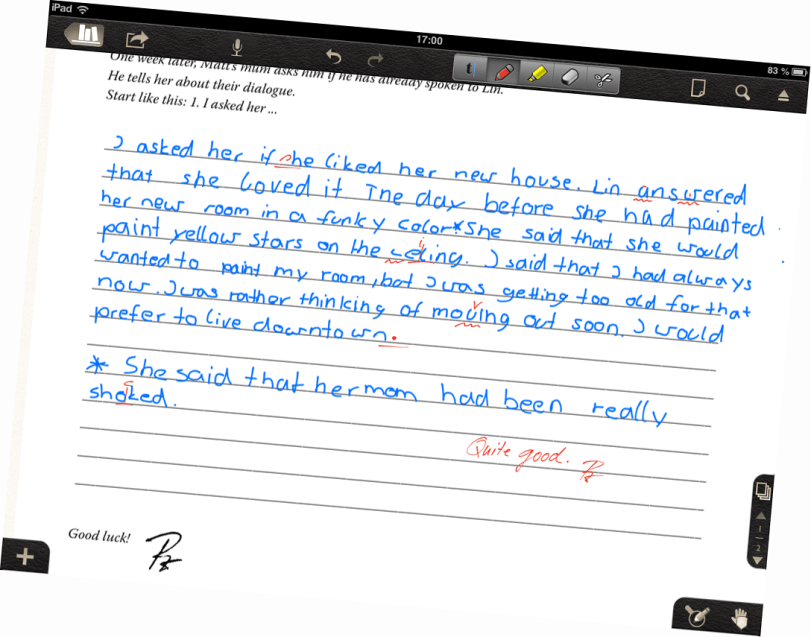 iPad
17:00
83 %
One week later, Matt's mum asks him if he has already spoken to Lin.
He tells her about their dialogue.
Start like this: 1. I asked her ...
I asked her if she liked her new house. Lin answered
that she loved it The day before she had painted
her new room in a funky color* She said that she would
paint yellow stars on the ceiling. I said that I had always
wanted to paint my room, but I was getting too old for that
now. I was rather thinking of moving out soon. I would
prefer to live downtown.
* She said that her mom had been really
shocked.
Quite good.
Good luck!
1
2